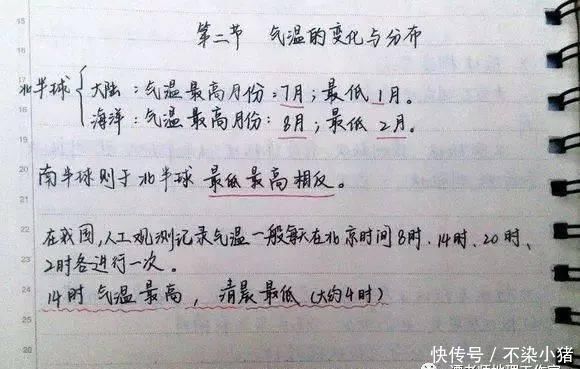 第二节 气温的变化与分布
北半球 大陆：气温最高月份：7月；最低1月。
海洋：气温最高月份：8月；最低2月。
南半球则于北半球最低最高相反。
在我国，人工观测记录气温一般每天在北京时间8时、14时、20时、
2时各进行一次。
14时气温最高，清晨最低（大约4时）
15
16
17
18
19
20
21
22
23
24
25
26
快传号 / 不染小猪